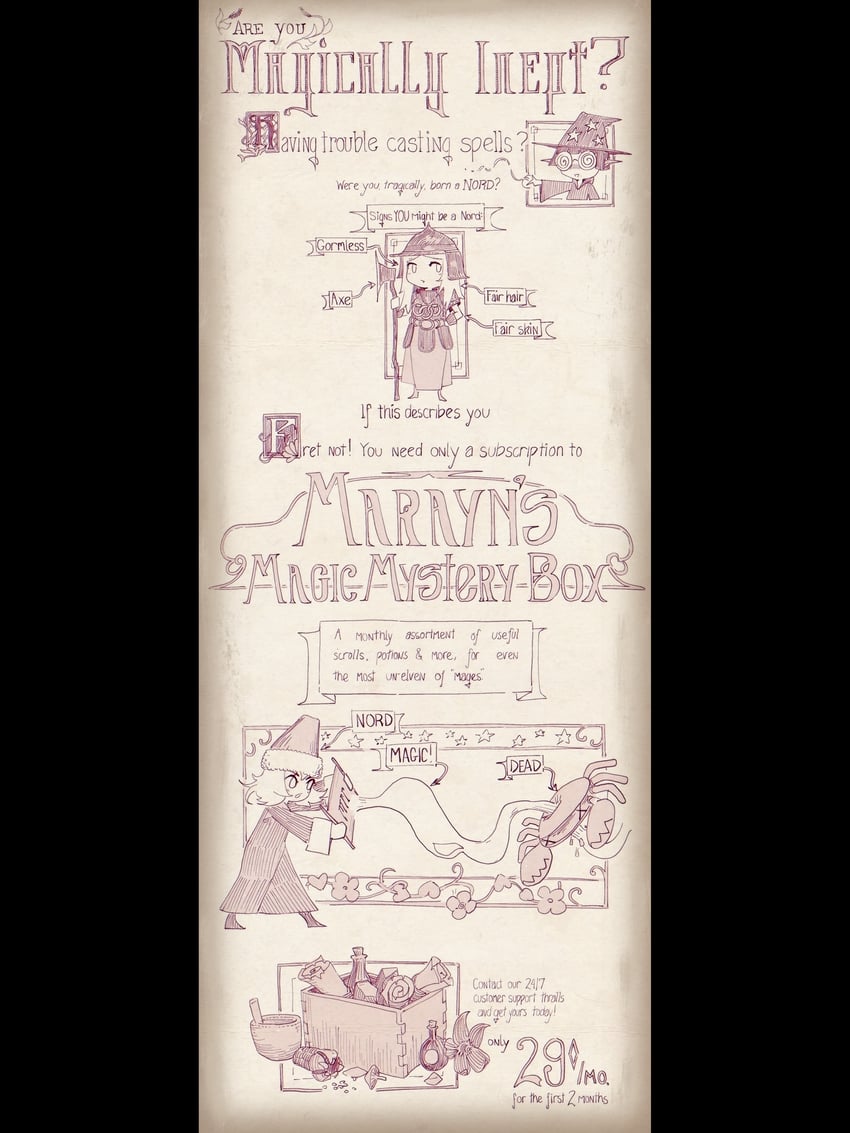 ARE YOU
MAGICALLY INEPT?
Having trouble casting spells?
Were you, tragically, born a NORD?
Signs YOU might be a Nord:
Gormless
Axe
Fair hair
Fair skin
If this describes you
Fret not! You need only a subscription to
MARAYN'S
MAGIC MYSTERY BOX
A monthly assortment of useful
scrolls, potions & more, for even
the most un-elven of "mages".
NORD
MAGIC!
DEAD
Contact our 24/7
customer support thralls
and get yours today!
only 29◊/MO.
for the first 2 MONTHS